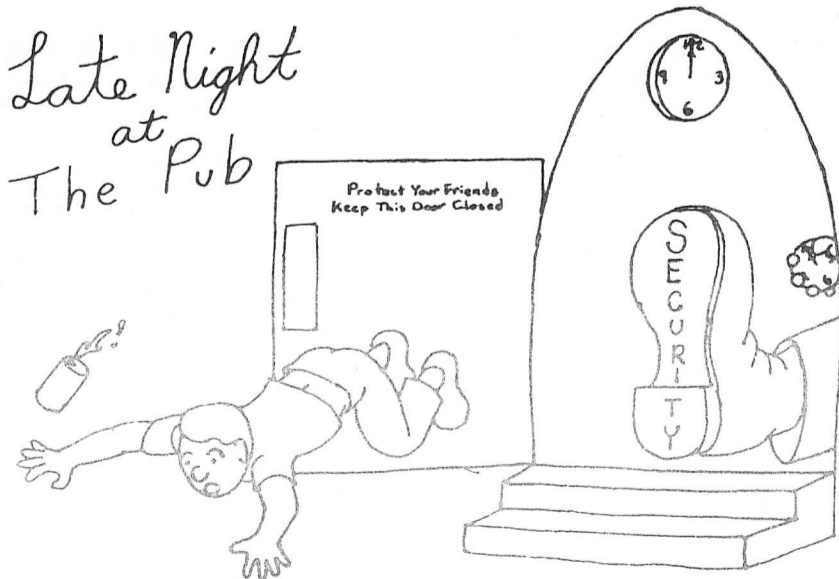 Late Night
at
The Pub
Protect Your Friends
Keep This Door Closed
12
9 3
6
SECURITY